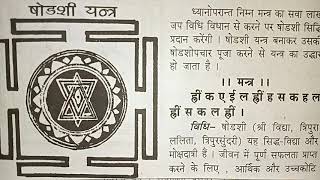 षोडशी यन्त्र
ध्यानोपरान्त निम्न मन्त्र का सवा लाख
जप विधि विधान से करने पर षोडशी सिद्धि
प्रदान करेंगी । षोडशी यन्त्र बनाकर उसकी
षोडशोपचार पूजा करने से यन्त्र का उद्धार
हो जाता है ।
।। मन्त्र ।।
ह्रीं क ए ई ल ह्रीं ह स क ह ल
ह्रीं स क ल ह्रीं ।
विधि- षोडशी (श्री विद्या, त्रिपुरा
ललिता, त्रिपुरसुंदरी) यह सिद्ध-विद्या और
मोक्षदात्री हैं । जीवन में पूर्ण सफलता प्राप्त
करने के लिए , आर्थिक और उच्चकोटि